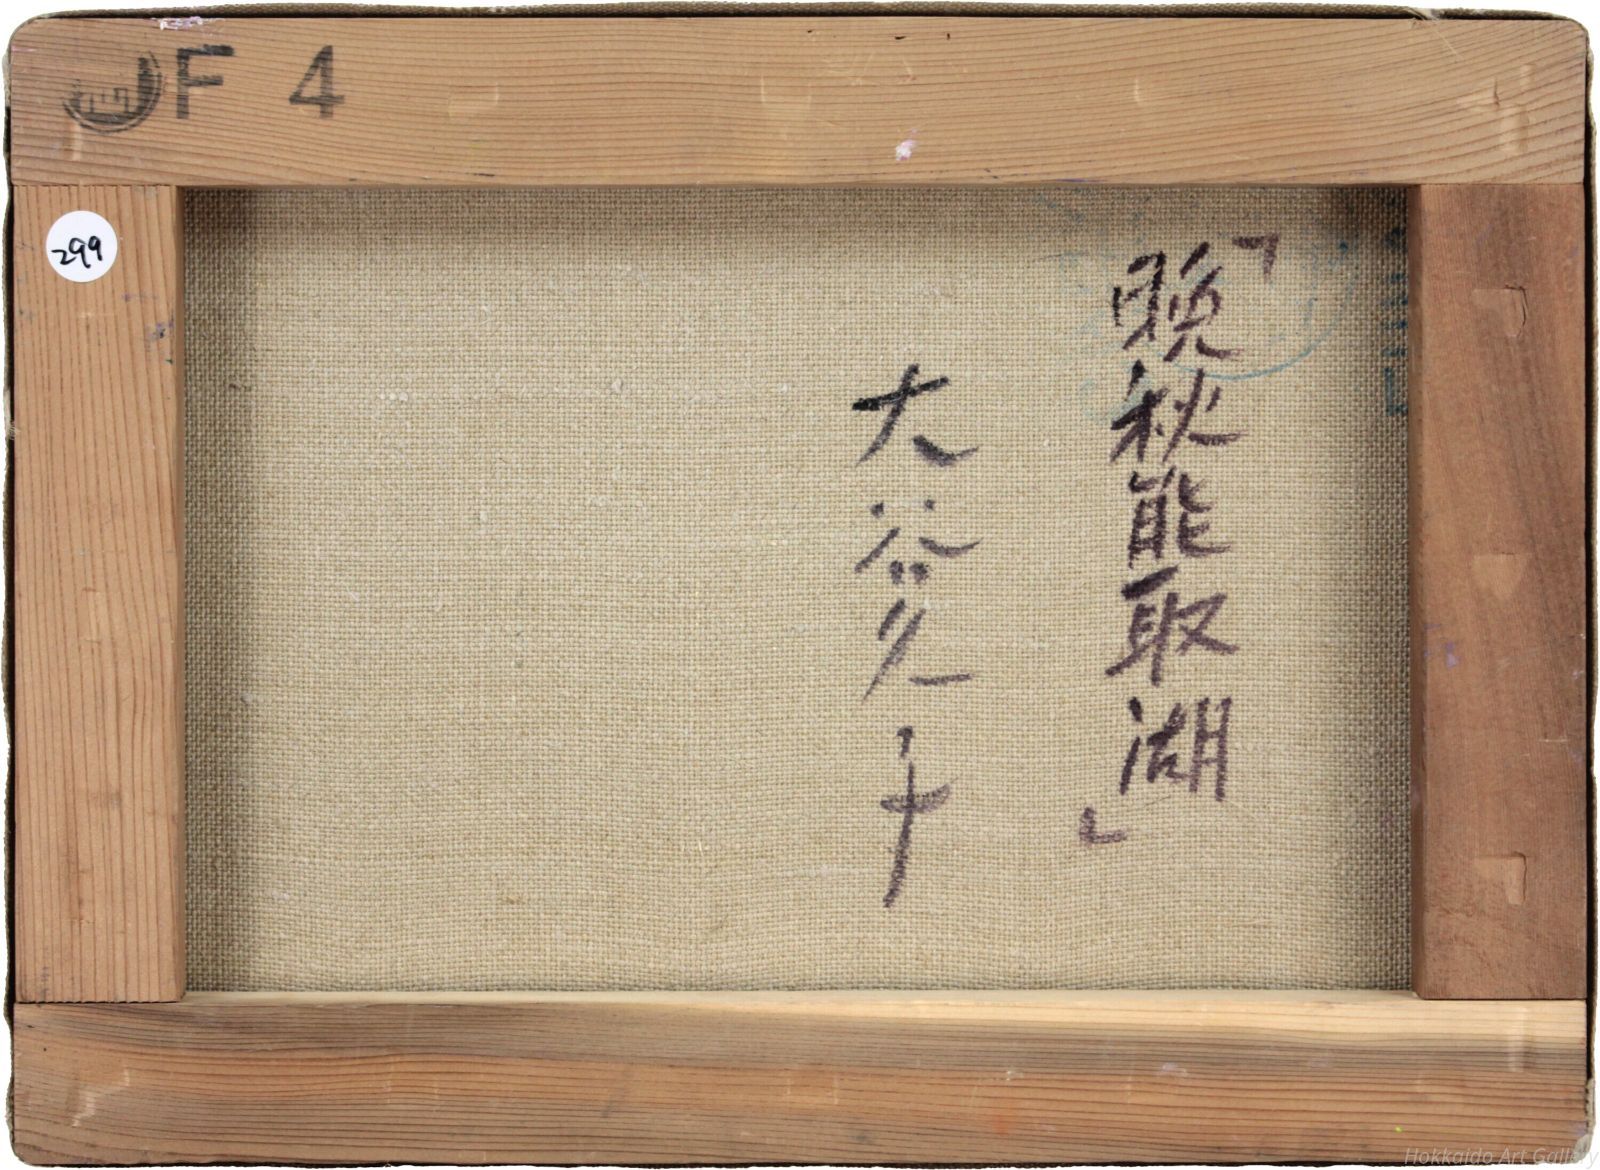 F 4
299
「晩秋能取湖」
大谷久子
Hokkaido Art Gallery